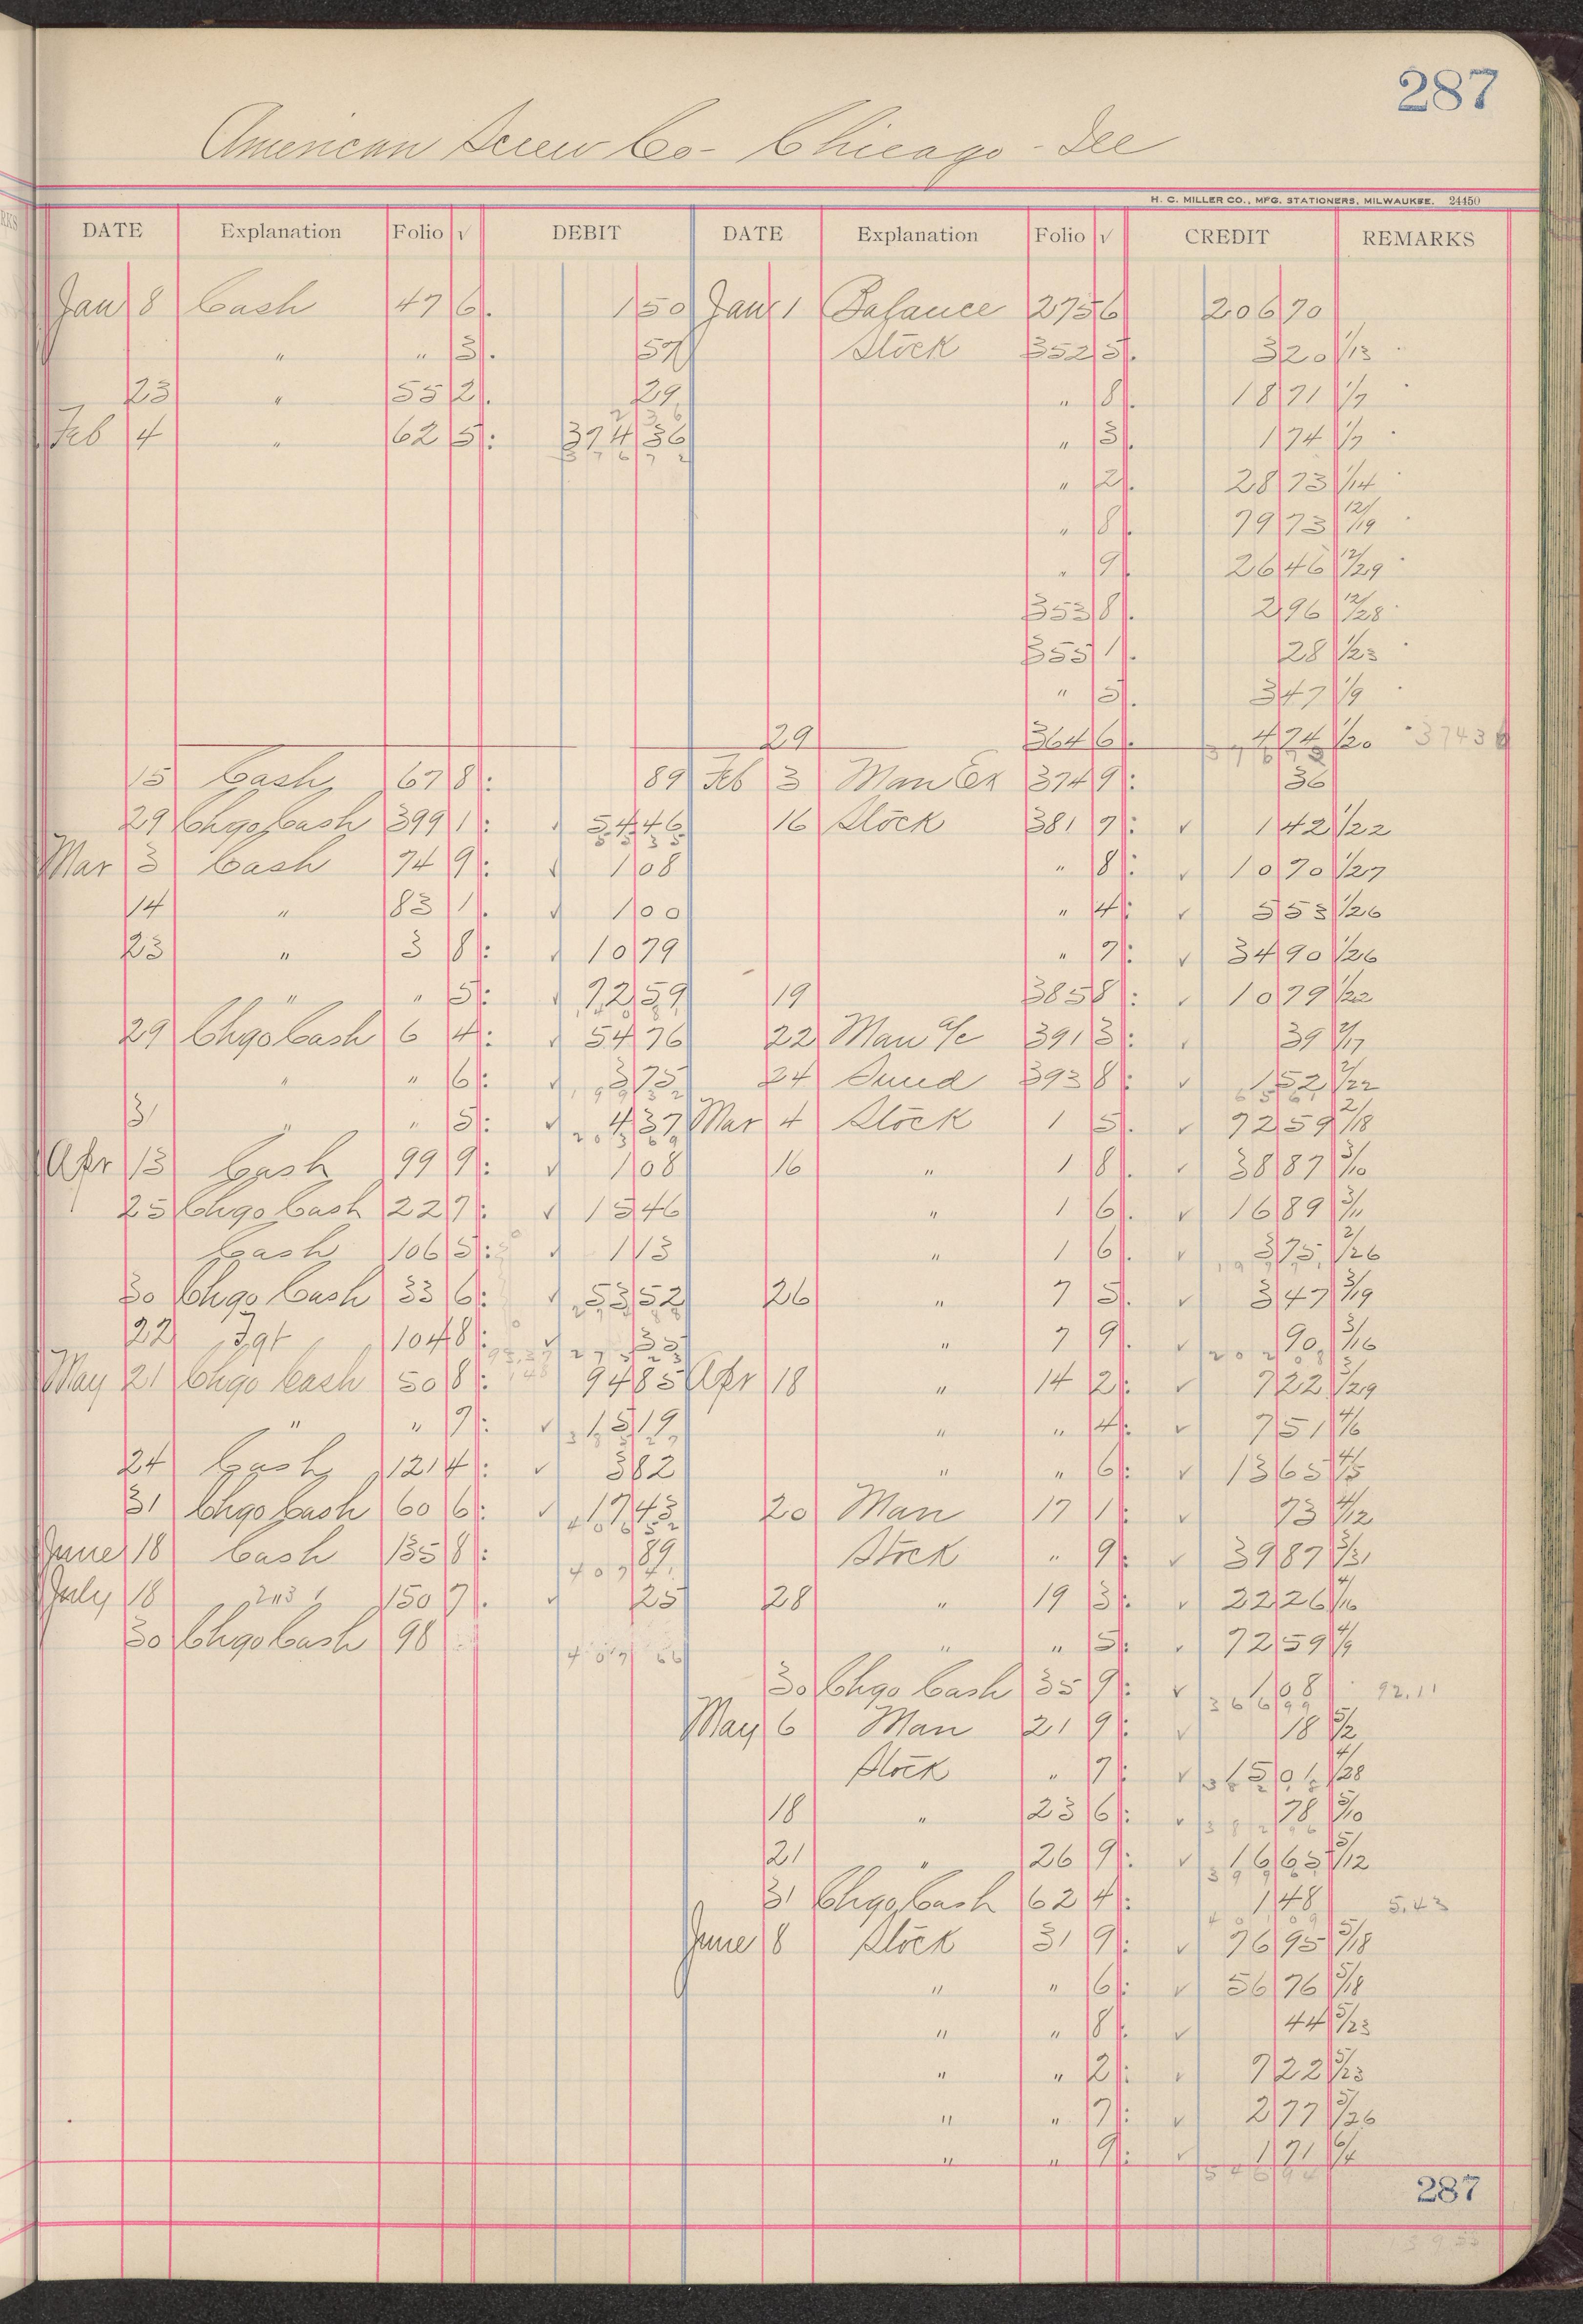 287
American Screw Co- Chicago - Ill
H. C. MILLER CO., MFG. STATIONERS, MILWAUKEE. 24450
DATE Explanation Folio √ DEBIT DATE Explanation Folio √ CREDIT REMARKS
Jan 8 Cash 47 6 1 50 Jan 1 Balance 275 6 206 70
" " 3 57 Stock 352 5 3 20 1/13
23 " 55 2 29 " 8 18 71 1/7
Feb 4 " 62 5 374 36 " 3 1 74 1/7
" 2 28 73 1/14
" 8 79 73 12/19
" 9 26 46 12/29
353 8 2 96 12/28
355 1 28 1/23
" 5 3 47 1/9
29 364 6 4 74 1/20 3743
15 Cash 67 8 89 Feb 3 Man Ex 374 9 36
29 Chgo Cash 399 1 54 46 16 Stock 381 7 1 42 1/22
Mar 3 Cash 74 9 1 08 " 8 10 70 1/27
14 " 83 1 1 00 " 4 5 53 1/26
23 " 3 8 10 79 " 7 34 90 1/26
" " 5 72 59 19 385 8 10 79 1/22
29 Chgo Cash 6 4 54 76 22 Man a/c 391 3 39 2/17
" " 6 3 75 24 Sund 393 8 1 52 2/22
31 " " 5 4 37 Mar 4 Stock 1 5 72 59 2/18
Apr 13 Cash 99 9 1 08 16 " 1 8 38 87 3/10
25 Chgo Cash 22 7 13 46 " 1 6 16 89 3/11
Cash 106 5 1 13 " 1 6 3 75 2/26
30 Chgo Cash 33 6 53 52 26 " 7 5 3 47 3/19
22 104 8 33 " 7 9 90 3/16
May 21 Chgo Cash 50 8 94 85 Apr 18 " 14 2 7 22 3/29
" " 7 15 19 " " 4 7 51 4/6
24 Cash 121 4 3 82 " " 6 13 65 4/5
31 Chgo Cash 60 6 17 43 20 Man 17 1 73 4/12
June 18 Cash 135 8 89 Stock " 9 39 87 3/31
July 18 " 150 7 25 28 " 19 3 22 26 4/16
30 Chgo Cash 98 " " 5 72 59 4/9
30 Chgo Cash 35 9 1 08 92.11
May 6 Man 21 9 18 5/2
Stock " 7 4/28
18 " 23 6 78 5/10
21 " 26 9 16 65 5/12
31 Chgo Cash 62 4 1 48 5.43
June 8 Stock 31 9 76 95 5/18
" " 6 56 76 5/18
" " 8 44 5/23
" " 2 7 22 5/23
" " 7 2 77 5/26
" " 9 1 71 6/4
287